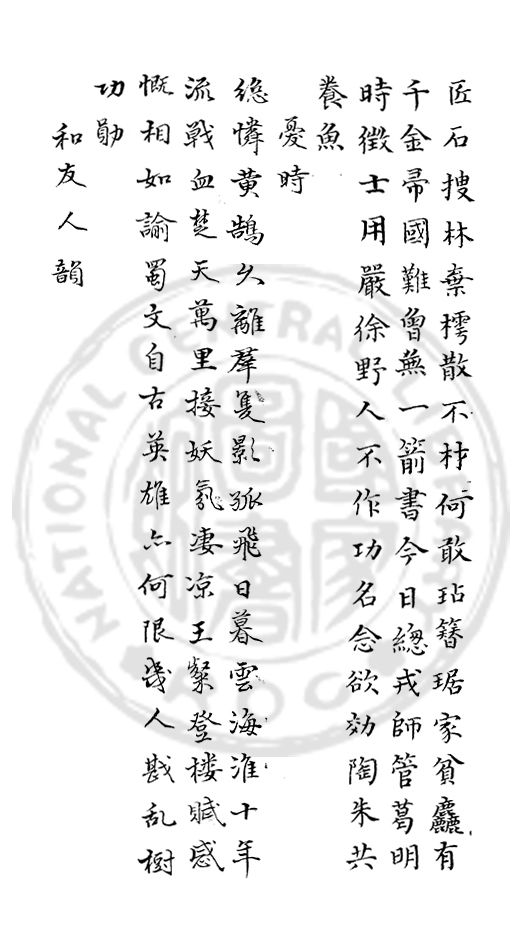 匠石搜林棄樗散不材何敢玷簪琚家貧麤有
千金帚國難曾無一箭書今日總戎師管葛明
時徵士用嚴徐野人不作功名念欲効陶朱共
養魚
憂時
絶憐黄鵠久離羣隻影孤飛日暮雲海淮十年
流戰血楚天萬里接妖氛凄凉王粲登楼賦感
慨相如諭蜀文自古英雄亦何限幾人戡乱樹
功勛
和友人韻
NATIONAL CENTRAL LIBRARY